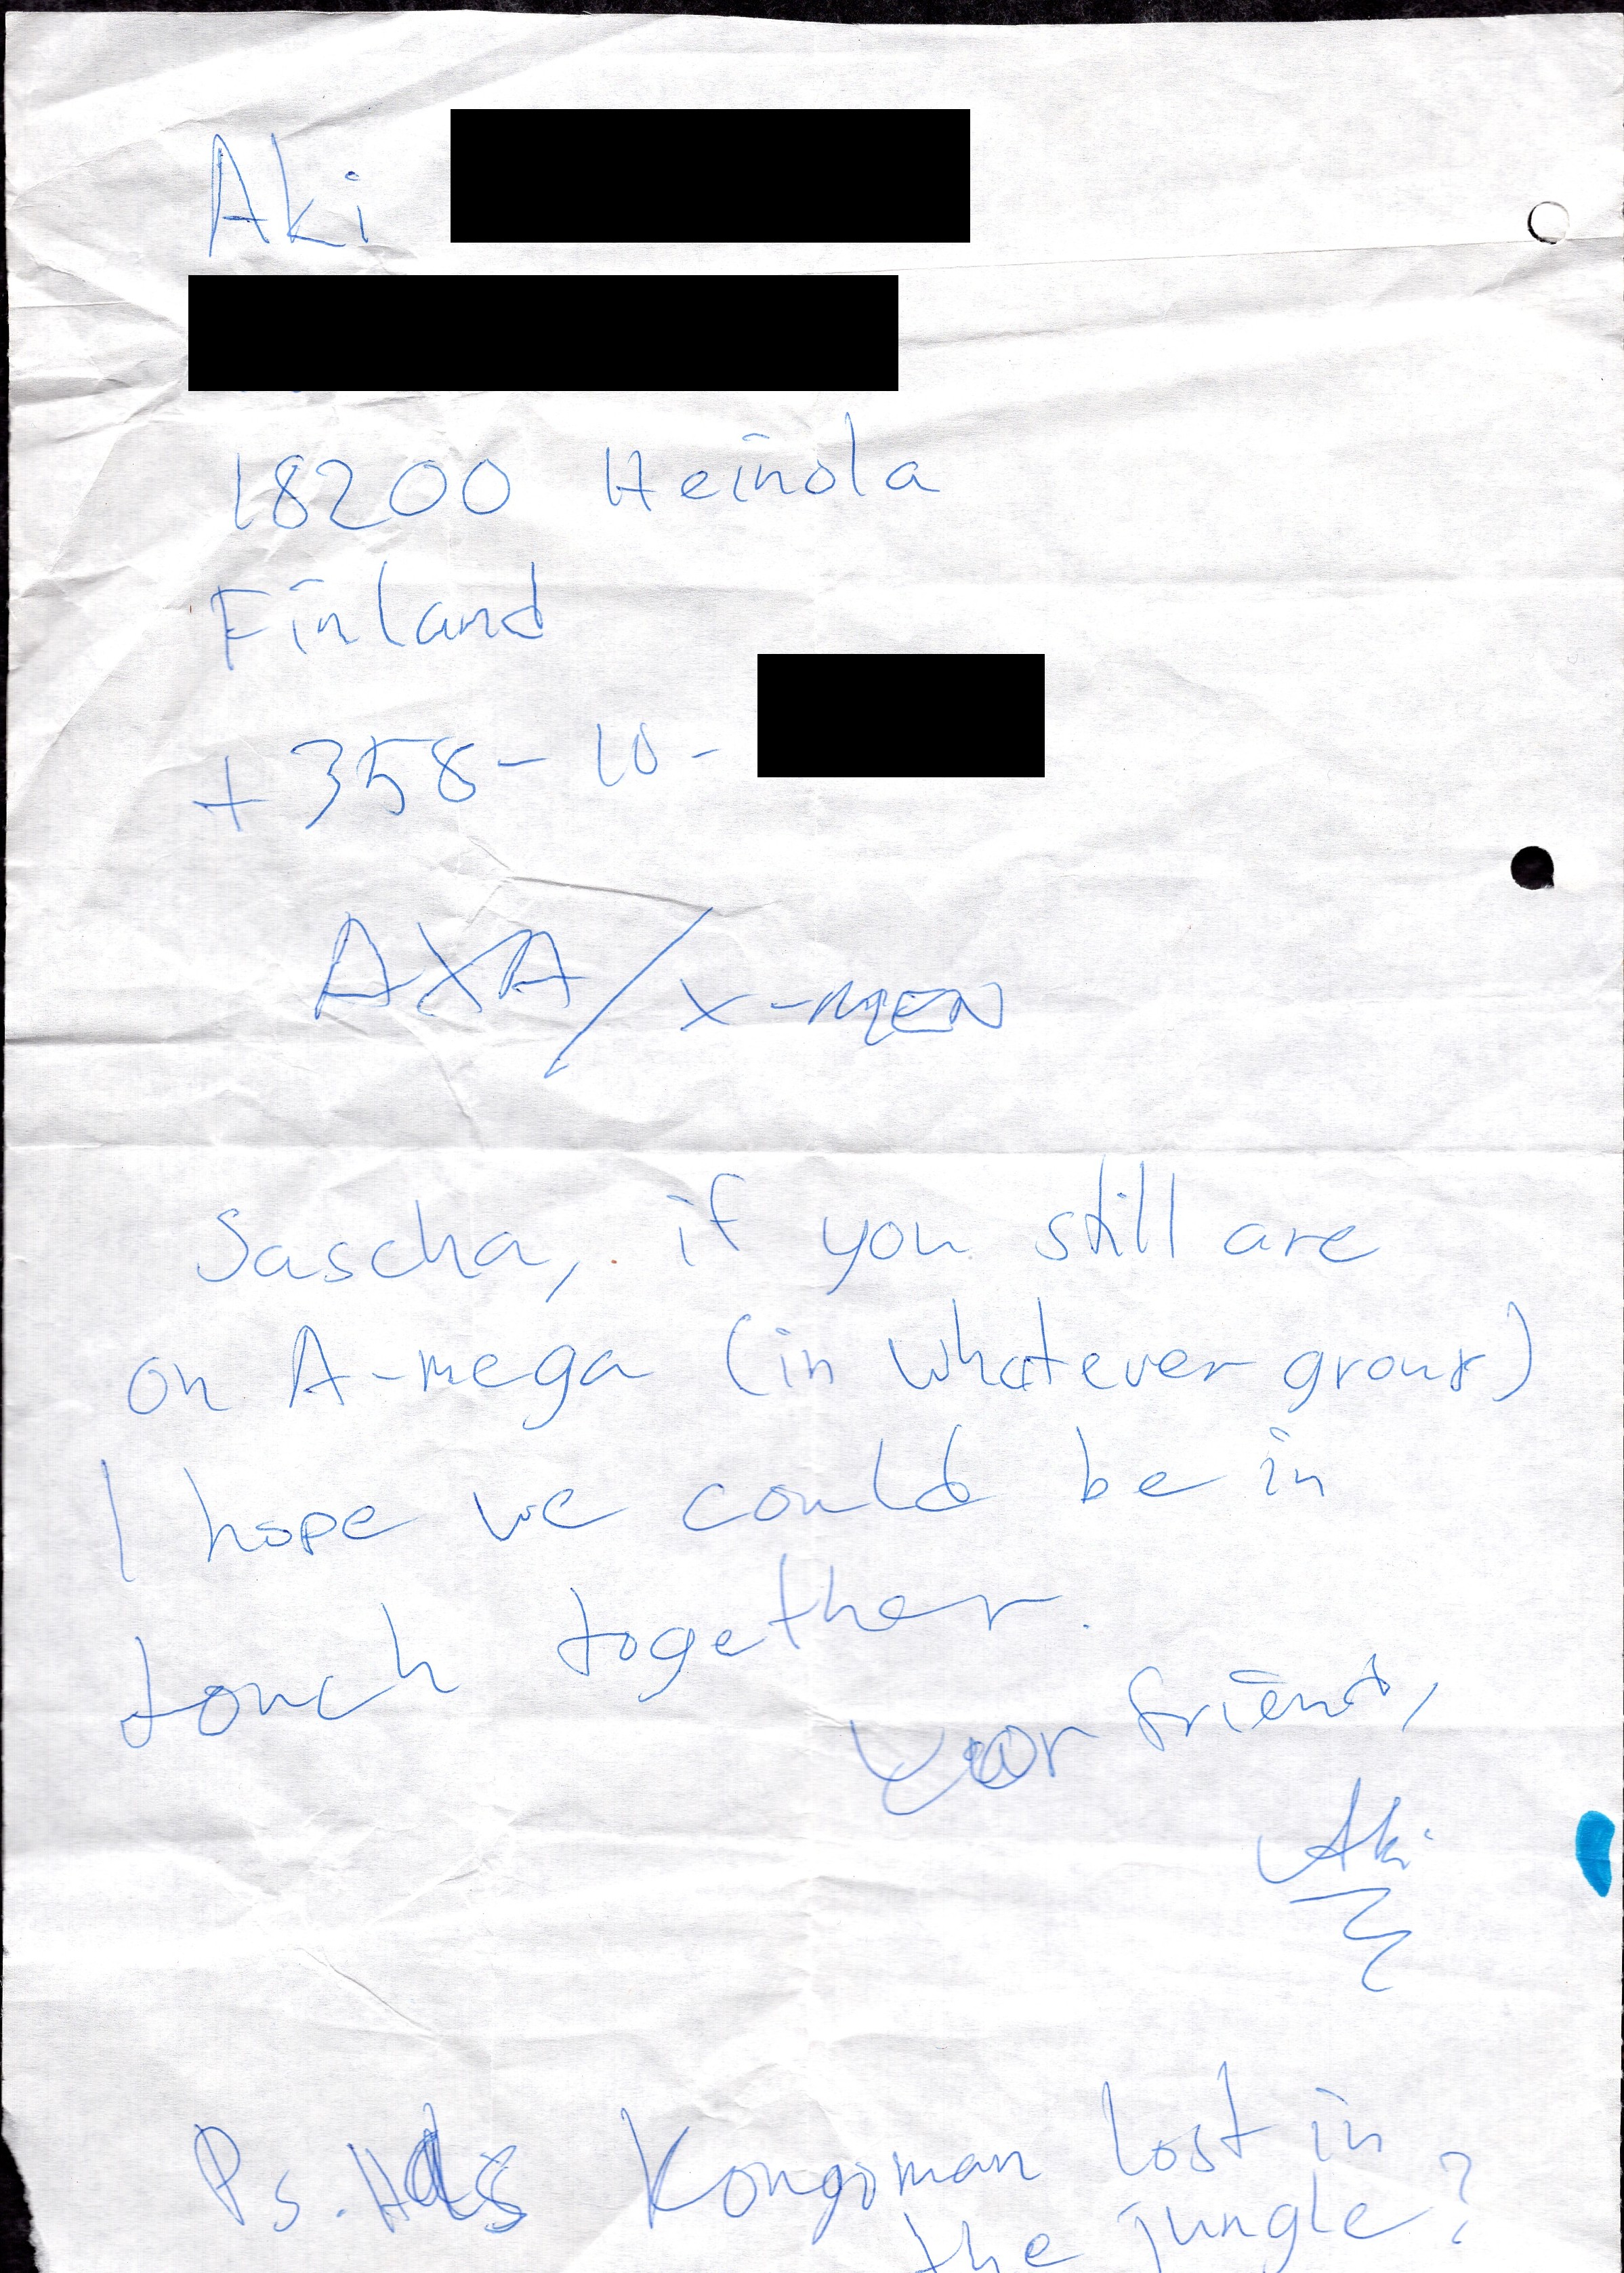 Aki
18200 Heinola
Finland
+358-10-
AXA/X-MEN
Sascha, if you still are
on A-mega (in whatever group)
I hope we could be in
touch together.
Your friend,
Aki
Ps. Has Kongoman lost in
the jungle?